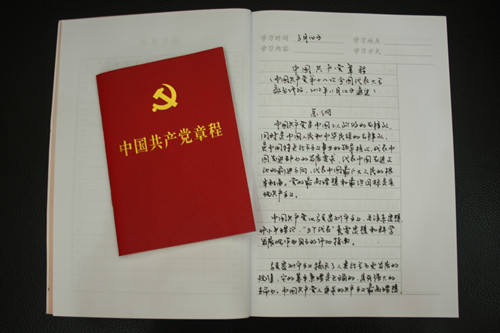 中国共产党章程
学习时间 3月16日 学习地点
学习内容 学习方式
中国共产党章程
(中国共产党第十八次全国代表大会
部分修改,2012年11月14日通过)
总纲
中国共产党是中国工人阶级的先锋队,
同时是中国人民和中华民族的先锋队,
是中国特色社会主义事业的领导核心,代表中
国先进生产力的发展要求,代表中国先进文
化的前进方向,代表中国最广大人民的根
本利益。党的最高理想和最终目标是实
现共产主义。
中国共产党以马克思列宁主义、毛泽东思想、
邓小平理论、"三个代表"重要思想和科学
发展观作为自己的行动指南。
马克思列宁主义揭示了人类社会历史发展的
规律,它的基本原理是正确的,具有强大的
生命力。中国共产党人追求的共产主义最高理想,